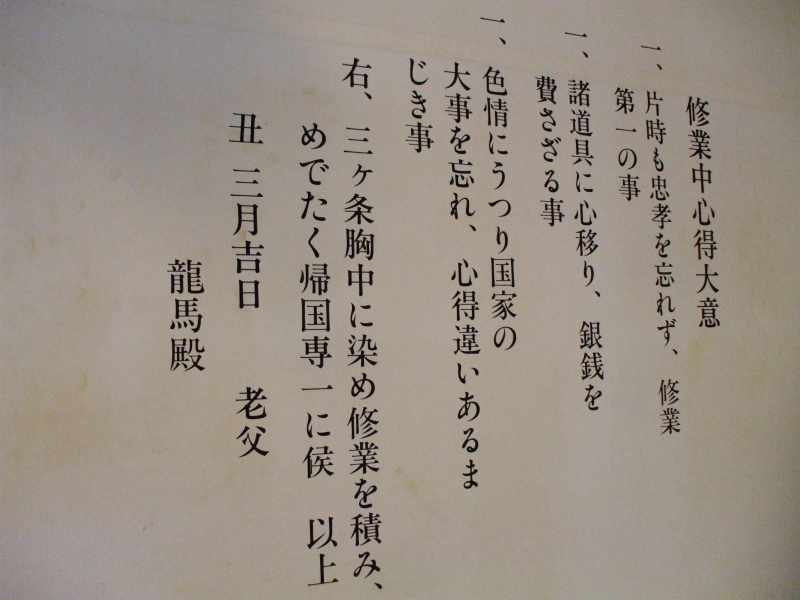 修業中心得大意
一、片時も忠孝を忘れず、修業
第一の事
一、諸道具に心移り、銀銭を
費さざる事
一、色情にうつり国家の
大事を忘れ、心得違いあるま
じき事
右、三ヶ条胸中に染め修業を積み、
めでたく帰国専一に侯 以上
丑 三月吉日 老父
龍馬殿